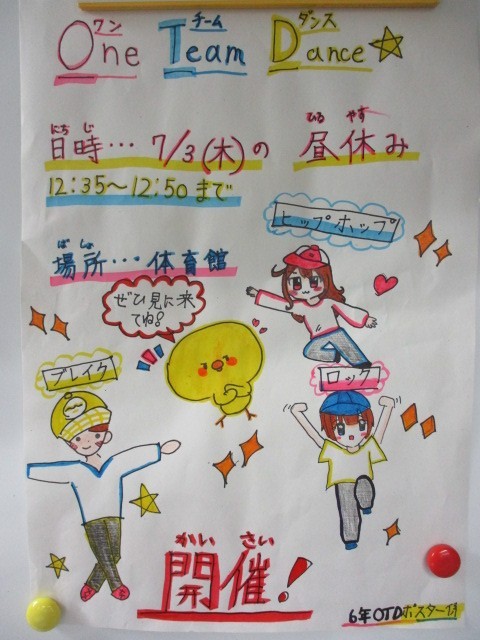 ワン チーム ダンス
One Team Dance
にち じ ひる やす
日時… 7/3(木)の 昼休み
12:35〜12:50まで
場所… 体育館
ばしょ
ヒップホップ
ぜひ見に来
てね!
ブレイク
ロック
かい さい
開催!